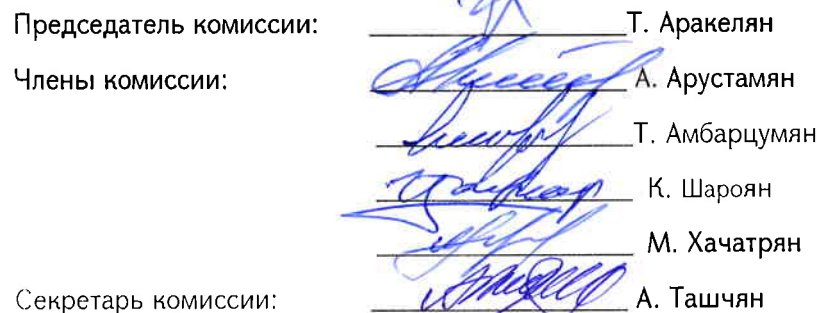 Председатель комиссии: Т. Аракелян
Члены комиссии: А. Арустамян
Т. Амбарцумян
К. Шароян
М. Хачатрян
Секретарь комиссии: А. Ташчян